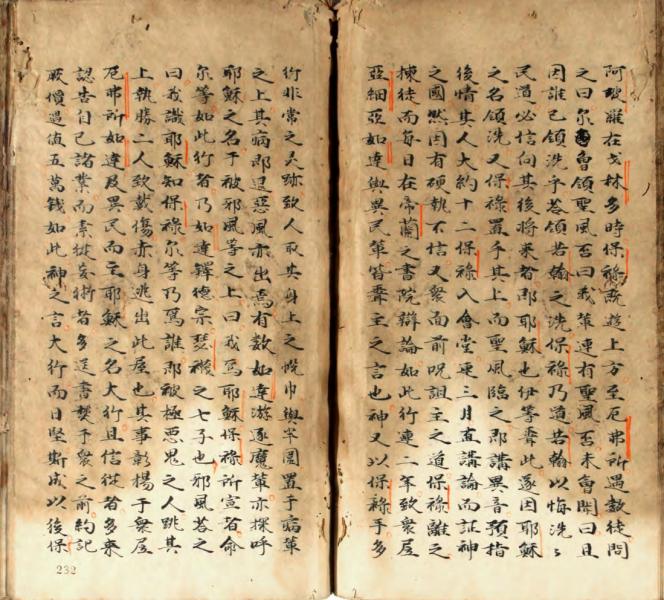 阿玻羅在戈林多時保祿旣遊上方至厄弗所遇數徒問
之曰尔曾領聖風否曰我輩連有聖風否未曾聞曰且
因誰已領洗乎答領若翰之洗保祿乃道若翰以悔洗洗
民道必信向其後將來者卽耶穌也伊等聽此遂因耶穌
之名領洗又保祿置手其上而聖風臨之卽講異音預指
後情其人大約十二保祿入會堂連三月直講論而証神
之國然因有硬執不信又衆面前呪詛主之道保祿離之
揀徒而每日在帝蘭之書院辯論如此行連二年致衆居
亞細亞如達與異民輩皆聽主之言也神又以保祿手多
行非常之灵跡致人取其身上之帨巾與半圍置于病輩
之上其病卽退惡風亦出焉有數如達游逐魔輩亦探呼
耶穌之名于被邪風等之上曰我為耶穌保祿所宣者命
尔等如此行者乃如達鐸德宗瑟襏之七子也邪風答之
曰我識耶穌知保祿尔等乃為誰卽被極惡鬼之人跳其
上執勝二人致戴傷赤身逃出此屋也其事彰揚于衆居
厄弗所如達及異民而主耶穌之名大行且信徒者多來
認告自己諸業而素從妄術者多送書契于衆之前約記
厥價過值五萬錢如此神之言大行而日堅斯成以後保
232